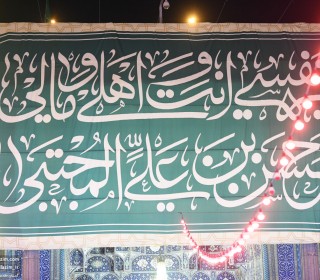 بنفسي انت و اهلي و مالي
حسن بن علي المجتبى